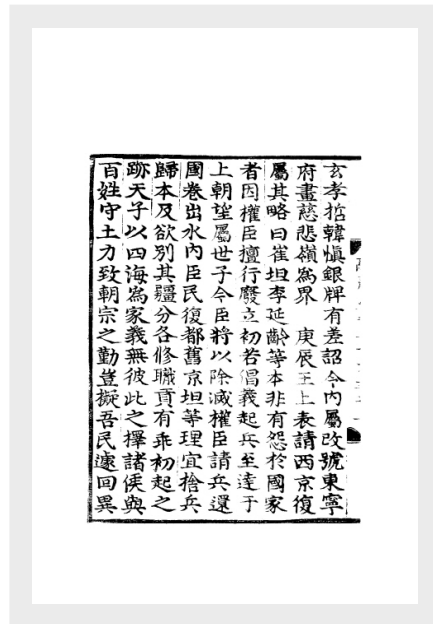 玄孝哲韓愼銀牌有差詔令內屬改號東寧
府畫慈悲嶺爲界 庚辰王上表請西京復
屬其略曰崔坦李延齡等本非有怨於國家
者因權臣擅行廢立初若倡義起兵至達于
上朝望屬世子今臣將以除滅權臣請兵還
國卷出水內臣民復都舊京坦等理宜捨兵
歸本及欲別其疆分各修職貢有乖初起之
跡天子以四海爲家義無彼此之擇諸侯與
百姓守土力致朝宗之勤豈擬吾民遽回異